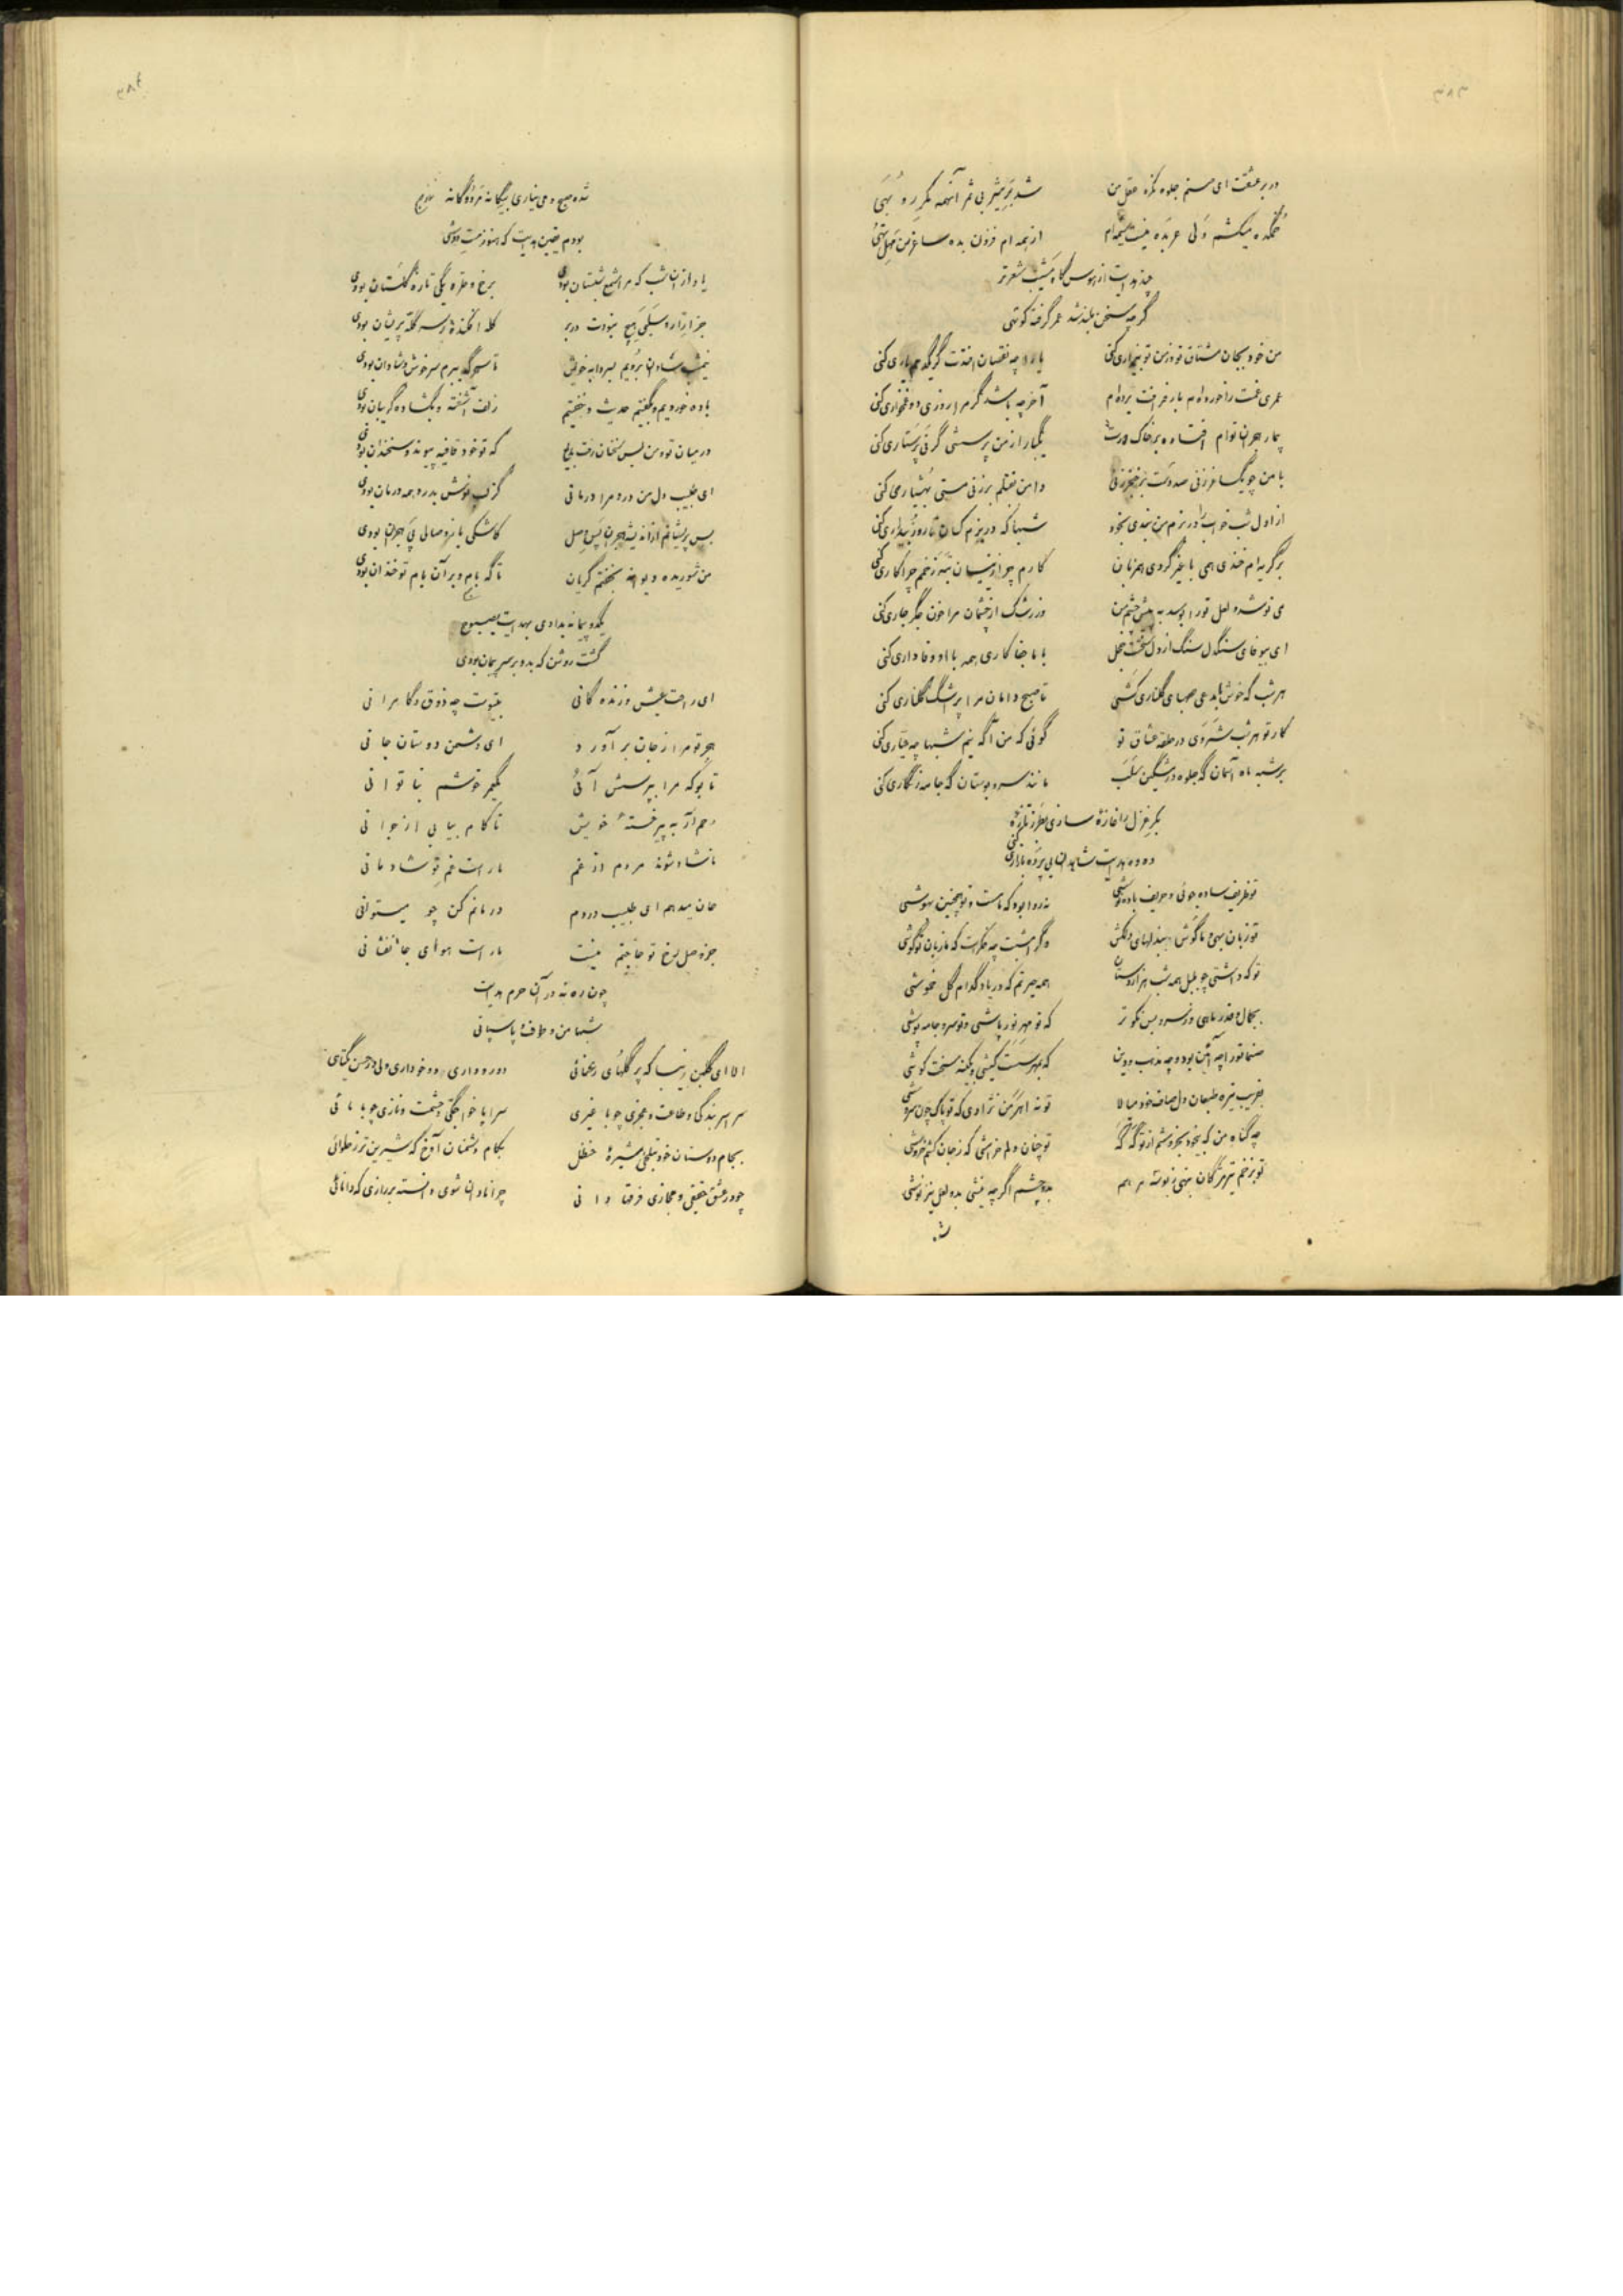 ۳۸۳
در بر عشقت ای صنم جلوه نکرد عقل من
شد بر بی ثمر آنهمه مکر رو بهی
خمکده میکشم ولی عربده نیست شیوه‌ام
از همه ام فزون بده ساغر من تهی
چند هدایت از هوس گاه شعر تر
گرچه سخن بلند شد عمر گرفت کوتهی
من خود بجان مشتاق تو وز من تو بیزاری کنی
یارا چه نقصان افتدت گر یکدمم یاری کنی
عمری غمت را خورده‌ام بار فراقت برده‌ام
آخر چه باشد گر مرا روزی دو غمخواری کنی
بیمار هجران توام افتاده بر خاک درت
یکبار از من پرسشی گر نی پرستاری کنی
با من چو یک ساغر زنی صد دست بر خنجر زنی
دامن نقلم بر زنی مستی به هشیاری کنی
از اول شب خواب را در بزم من بندی بخود
شبها که در بزم کسان تا روز بیداری کنی
بر گریه‌ام خندی همی با غیر گردی همزبان
کارم چو از تیر زخم چرا کاری کنی
می نوشد و لعل تو را بوسد به پیش چشم من
وز رشک از چشمان مرا خون جگر جاری کنی
ای بیوفای سنگدل سنگ از دل سختت خجل
با ما جفا کاری همه با او وفا داری کنی
هر شب که خوش با مدعی صهبای گلناری کشی
تا صبح دامان مرا پر اشک گلناری کنی
کار تو هر شب شبروی در حلقه عشاق تو
گوئی که من آگه نیم شبها چه عیاری کنی
بر شبه ماه آسمان گه جلوه در مشکین سلب
مانند سرو بوستان گه جامه زنگاری کنی
بکر غزل را غازه سازی بطرز تازه
ده ده هدایت شاهدان بی پرده بازاری کنی
تو ظریف ساده جوئی و حریف باده نوشی
نه روا بود که ماست و تو همچنین بهوشی
تو زبان بهی و ما گوش بهند لهای دلکش
دگر امشبت چه فکر است که ما زبان تو گوشی
تو که داشتی چو بلبل همه شب هزار دستان
همه حیرتم که در یاد کدام گل خموشی
بجمال و قدر ماهی و ز سرو بس نکو تر
که تو مهر نور پاشی و تو سرو جامه پوشی
صنما تو را چه آئین بود و چه مذهب و دین
که بمهر سست کیشی و بکینه سخت کوشی
بفریب تیره طبعان دل صاف خود میالا
تو نه اهرمن نژادی که تو پاک چون سروشی
چه گناه من که بیخود بخروشم از تو گه گه
تو چنان دلم خراشی که ز جان کشم خروشی
تو بزخم تیر مژگان
بدو چشم اگرچه نیشی بدو لعل نیز نوشی
۳۸۴
شده صبح و می نیاری بیگانه مر دوگانه
بودم یقین هدایت که هنوز مست دوشی
یاد از آن شب که مرا شمع شبستان بودی
برخ و طره یکی تازه گلستان بودی
جز ازار و سلبی هیچ نبودت در بر
کله افکنده ز سر کله پریشان بودی
نیمشب شاد بر رویم
تا سحرگه ببرم سرخوش و شادان بودی
باده خوردیم و بگفتیم حدیث و نخفتیم
زلف آشفته و بگشاده گریبان بودی
در میان تو و من بس سخنان رفت بدیع
که تو خود قافیه پیوند و سخندان بودی
ای طبیب دل من درد مرا درمانی
کز لب نوش بدرد همه درمان بودی
بس پریشانم از اندیشه هجران پس وصل
کاشکی یا نه وصالی پی هجران بودی
من شوریده دیوانه نخفتم گریان
تا گه بام و بر آن بام تو خندان بودی
یکدو پیمانه بدادی بهدایت بصبوح
گشت روشن که بدو بر سر پیمان بودی
ای راحت عیش و زنده گانی
بیتوت چه ذوق و کامرانی
هجر تو مرا ز جان بر آورد
ای دشمن دوستان جانی
تا بو که مرا بپرسش آئی
یکچند خوشم بناتوانی
رحم آر به پیر خستهٔ خویش
تا کام بیابی از جوانی
ناشاد شوند مردم از غم
ماراست غم تو شادمانی
جان میدهم ای طبیب دردم
درمانم کن چو میتوانی
جز وصل رخ تو حاجتم نیست
ماراست هوای جانفشانی
چون ره نه در آن حرم هدایت
شبها من و طوف پاسبانی
الا ای گلبن زیبا که پر گلهای رعنائی
دو رو داری دو خو داری ولی در حسن یکتائی
سراسر بندگی و طاعت و عجزی چو با غیری
سراپا خواجگی و حشمت و نازی چو با مائی
بجام دوستان خود بتلخی شیرهٔ حنظل
بکام دشمنان آوخ که شیرین تر ز حلوائی
چو در عشق حقیقی و مجازی فرقها دانی
چرا نادان شوی دانسته پرداری که دانائی